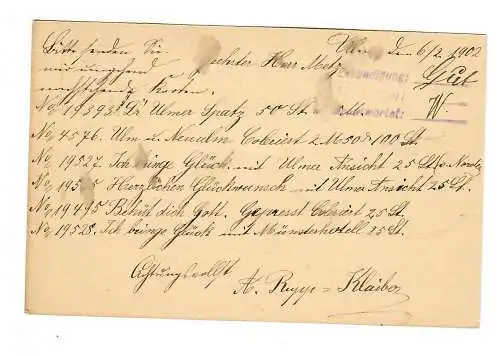 Bitte senden Sie
mir umgehend
nachstehende Karten.
Ulm, den 6/2 1902
Geehrter Herr Metz
Erledigung:
Gut
Antwortet:
W.
No 19393. Dr Ulmer Spatz 50 St.
No 4576. Ulm u. Neuulm Coloriert 2 M 50 d 100 St.
No 19527 Ich bringe Glück mit Ulmer Ansicht 25 St.
No 195 5 Herzlichen Glückwunsch mit Ulmer Ansicht 25 St.
No 19495 Behüt dich Gott. Gepresst Colriert 25 St.
No 19528. Ich bringe Glück mit Münsterhotell 25 St.
Achtungsvollst
A. Rupp = Klaiber